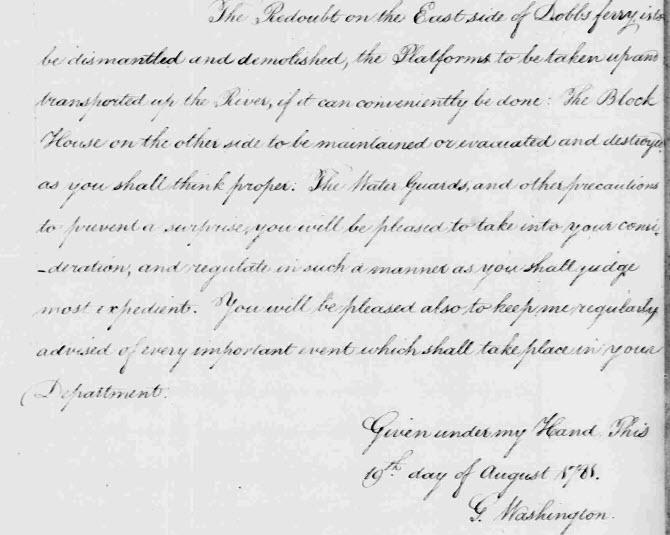 The Redoubt on the East side of Dobbs ferry is to
be dismantled and demolished, the Platforms to be taken up and
transported up the River, if it can conveniently be done: The Block
House on the other side to be maintained or evacuated and destroyed
as you shall think proper: The Water Guards, and other precautions
to prevent a surprise, you will be pleased to take into your consi-
-deration, and regulate in such a manner as you shall judge
most expedient. You will be pleased also to keep me regularly
advised of every important event which shall take place in your
Department:
Given under my Hand This
19th day of August 1781.
G. Washington.